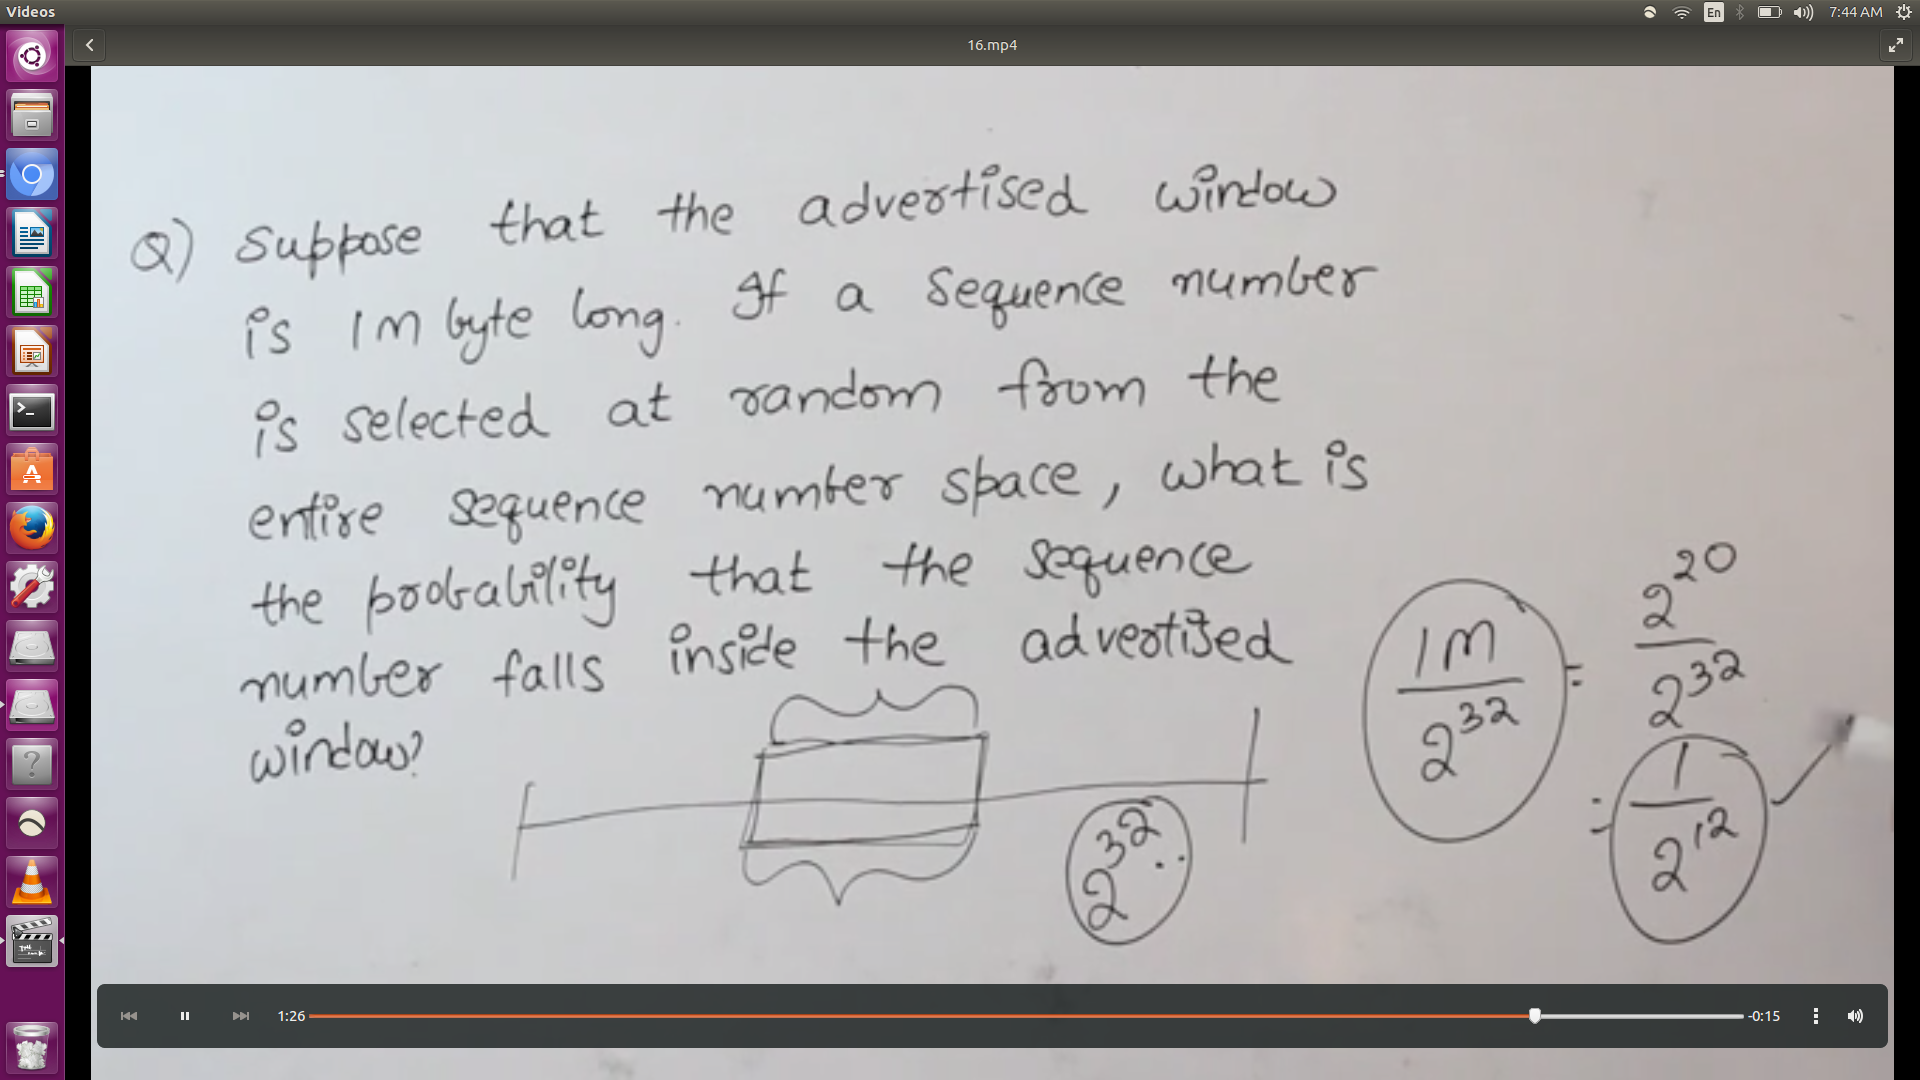 Videos
En
7:44 AM
16.mp4
Q) Suppose that the advertised window
is 1M byte long. If a sequence number
is selected at random from the
entire sequence number space, what is
the probability that the sequence
number falls inside the advertised
window?
2^32
1M / 2^32 = 2^20 / 2^32
= 1 / 2^12
1:26
-0:15